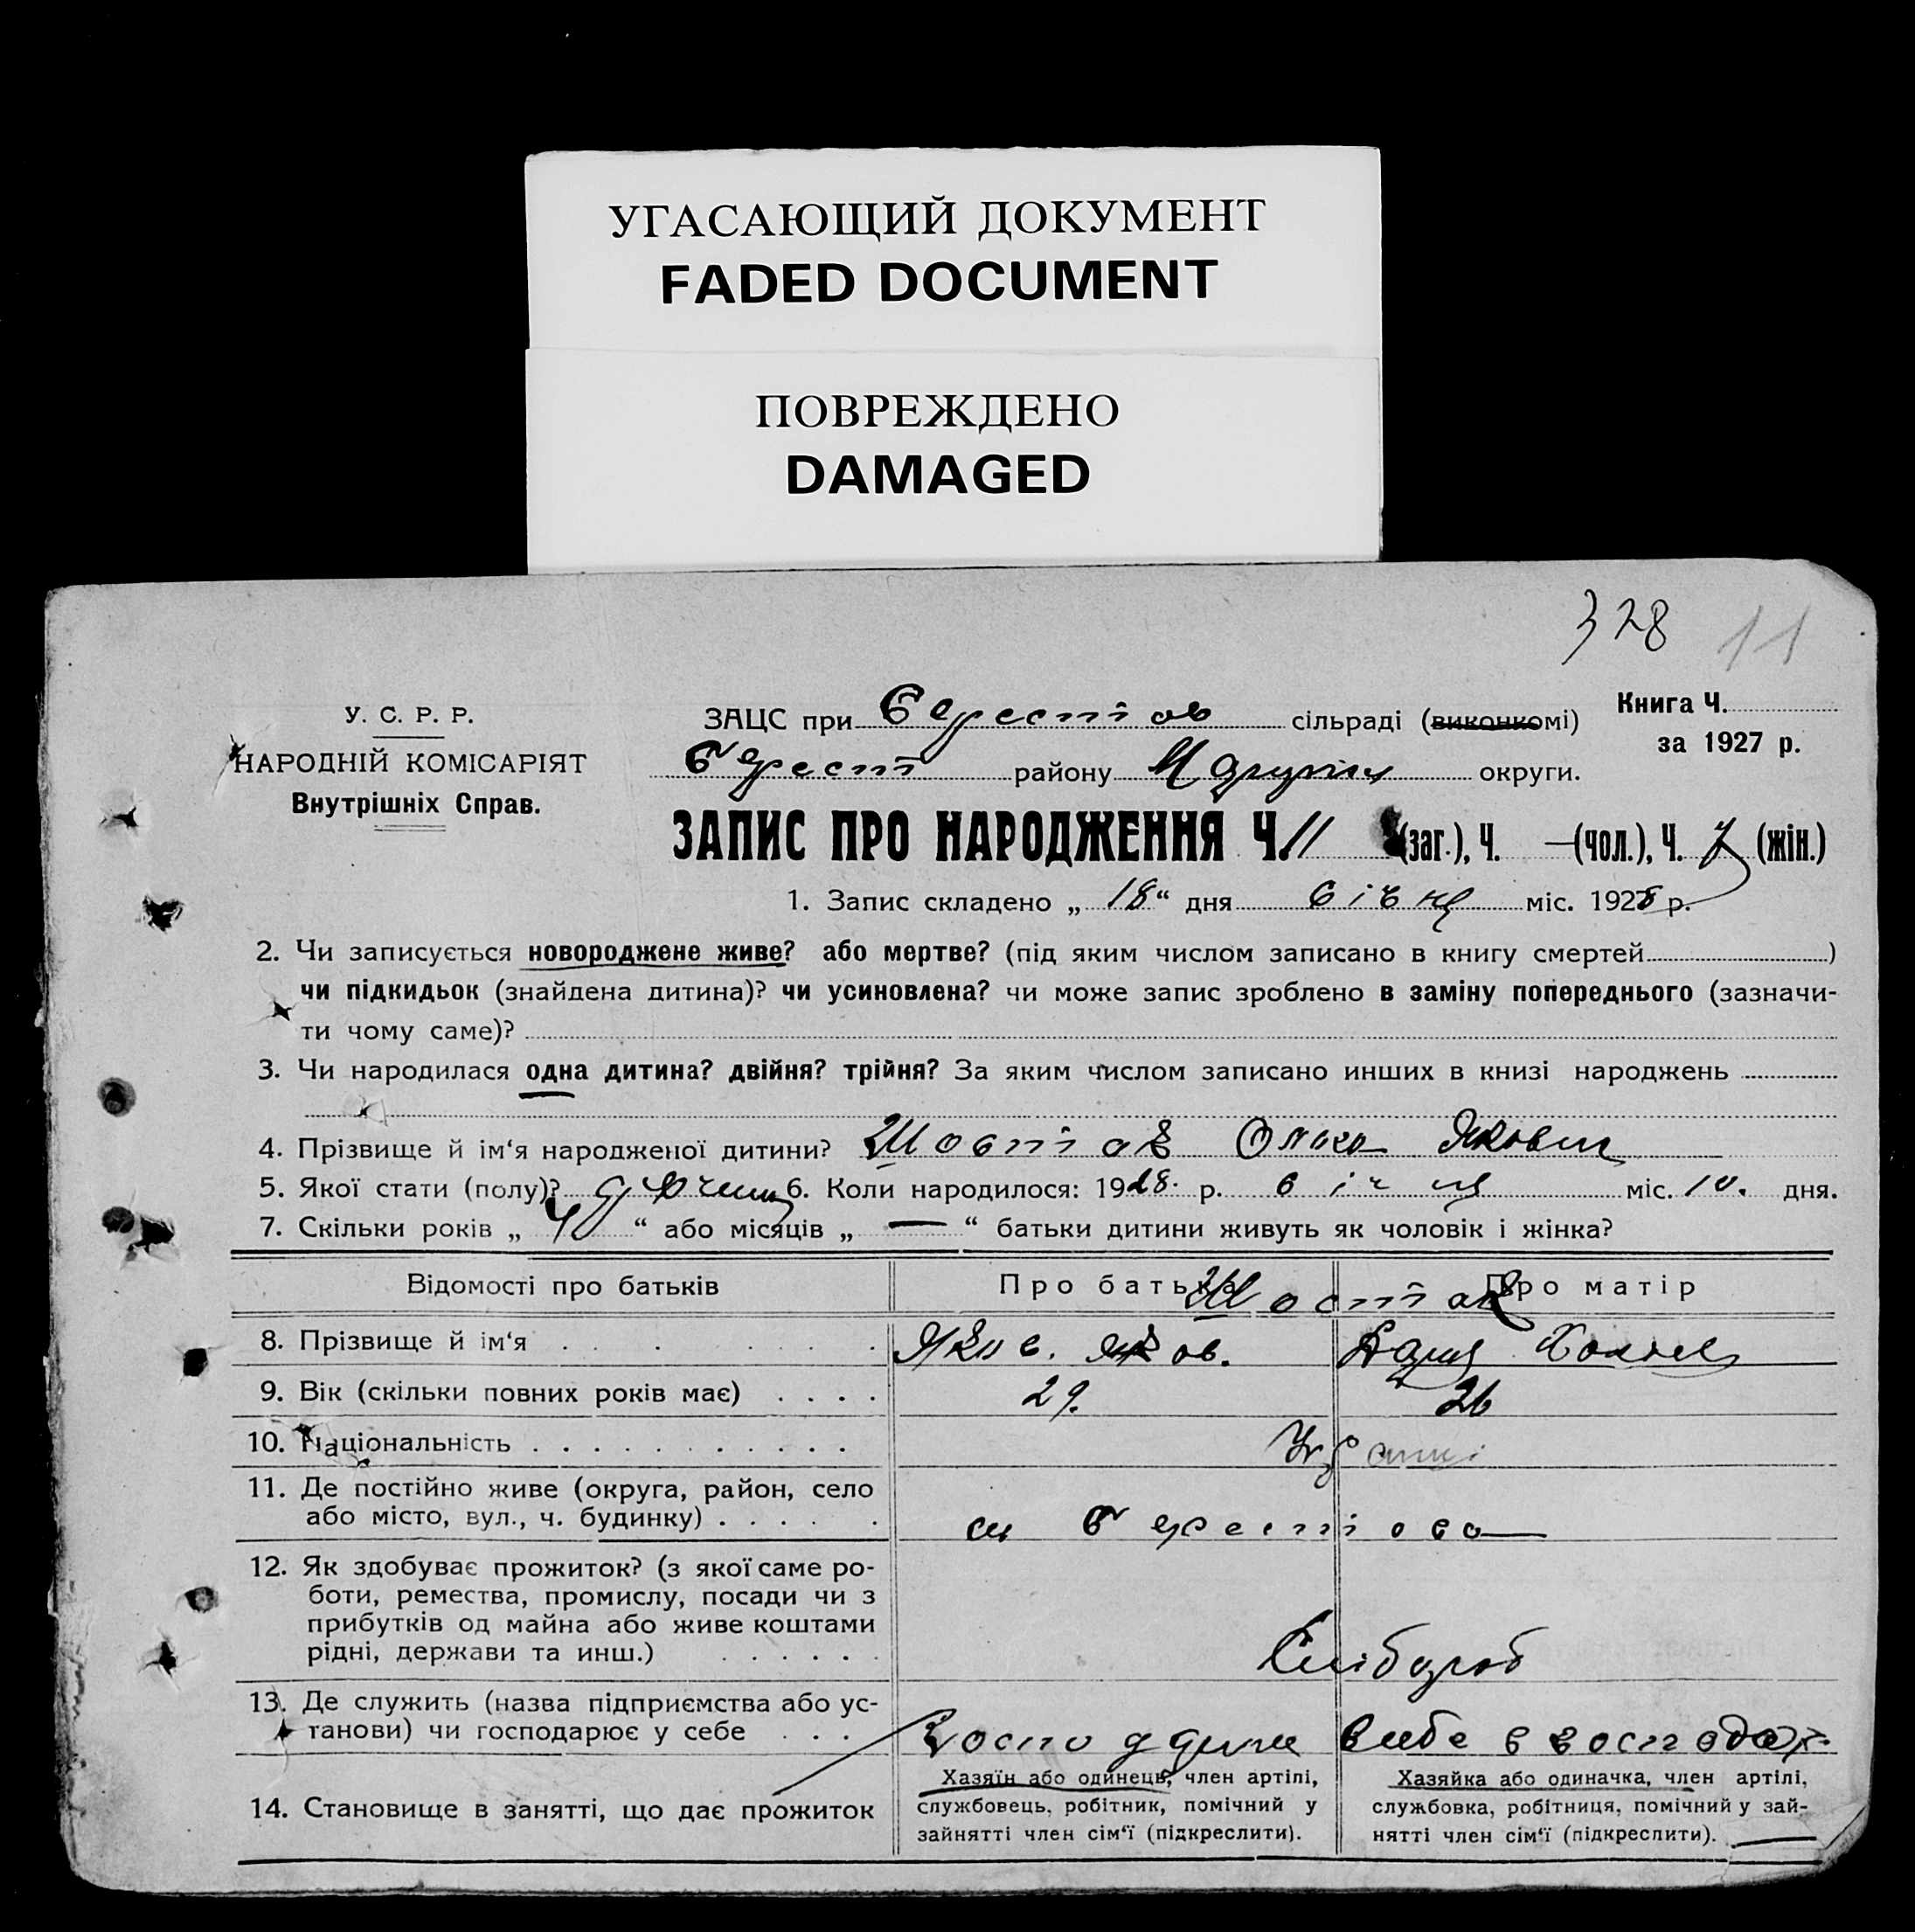 УГАСАЮЩИЙ ДОКУМЕНТ
FADED DOCUMENT
ПОВРЕЖДЕНО
DAMAGED
328 11
У. С. Р. Р.
НАРОДНІЙ КОМІСАРІЯТ
Внутрішніх Справ.
ЗАЦС при Берестов сільраді (виконкомі)
Берест району Маріупіл округи.
Книга Ч.
за 1927 р.
ЗАПИС ПРО НАРОДЖЕННЯ Ч. 11 (заг.), Ч. — (чол.), Ч. 7 (жін.)
1. Запис складено „ 18 “ дня січня міс. 1928 р.
2. Чи записується новороджене живе? або мертве? (під яким числом записано в книгу смертей )
чи підкидьок (знайдена дитина)? чи усиновлена? чи може запис зроблено в заміну попереднього (зазначи-
ти чому саме)?
3. Чи народилася одна дитина? двійня? трійня? За яким числом записано инших в книзі народжень
4. Прізвище й ім‘я народженої дитини? Шостак Ольга Яковл
5. Якої стати (полу)? 6. Коли народилося: 1928. р. січня міс. 10. дня.
7. Скільки років „ “ або місяців „ — “ батьки дитини живуть як чоловік і жінка?
Відомості про батьків Про батька Про матір
Шостак
8. Прізвище й ім‘я Яков. Яков. Дарія
9. Вік (скільки повних років має) 29. 26
10. Національність Украінці
11. Де постійно живе (округа, район, село
або місто, вул., ч. будинку) с. Берестово
12. Як здобуває прожиток? (з якої саме ро-
боти, ремества, промислу, посади чи з
прибутків од майна або живе коштами
рідні, держави та инш.) Хлібороб
13. Де служить (назва підприємства або ус-
танови) чи господарює у себе в себе в господар.
14. Становище в занятті, що дає прожиток
Хазяїн або одинець, член артілі,
службовець, робітник, помічний у
зайнятті член сім‘ї (підкреслити).
Хазяйка або одиначка, член артілі,
службовка, робітниця, помічний у зай-
нятті член сім‘ї (підкреслити).